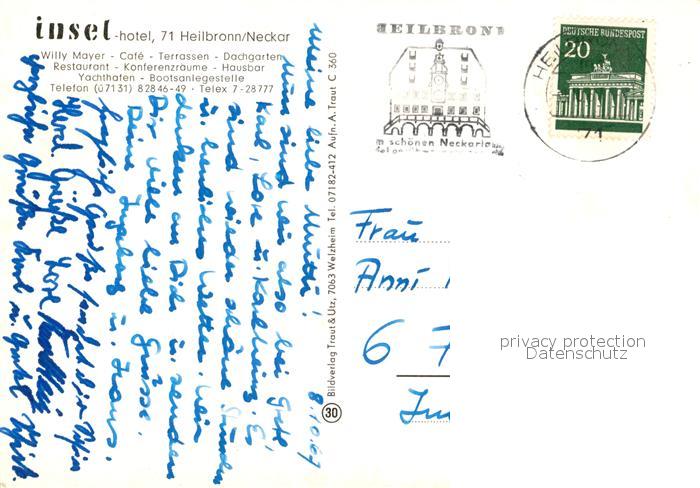 insel-hotel, 71 Heilbronn/Neckar
Willy Mayer - Café - Terrassen - Dachgarten
Restaurant - Konferenzräume - Hausbar
Yachthafen - Bootsanlegestelle
Telefon (07131) 82846-49 · Telex 7-28777
8.10.69
Meine liebe Mutti!
Nun sind wir also bei Gret
Karl, Lore u. Karlheinz. Es
sind wieder schöne Stunden
u. herrliches Wetter. Wir
denken an Dich u. senden
Dir viele liebe Grüsse.
Deine Ingeborg u. Hans.
Herzl. Grüße Lore
Bildverlag Traut & Utz, 7063 Welzheim Tel. 07182-412 Aufn.-A. Traut C 360
30
HEILBRONN
m schönen Neckarta
DEUTSCHE BUNDESPOST
20
HEI
71
Frau
Anni
6 7
privacy protection
Datenschutz